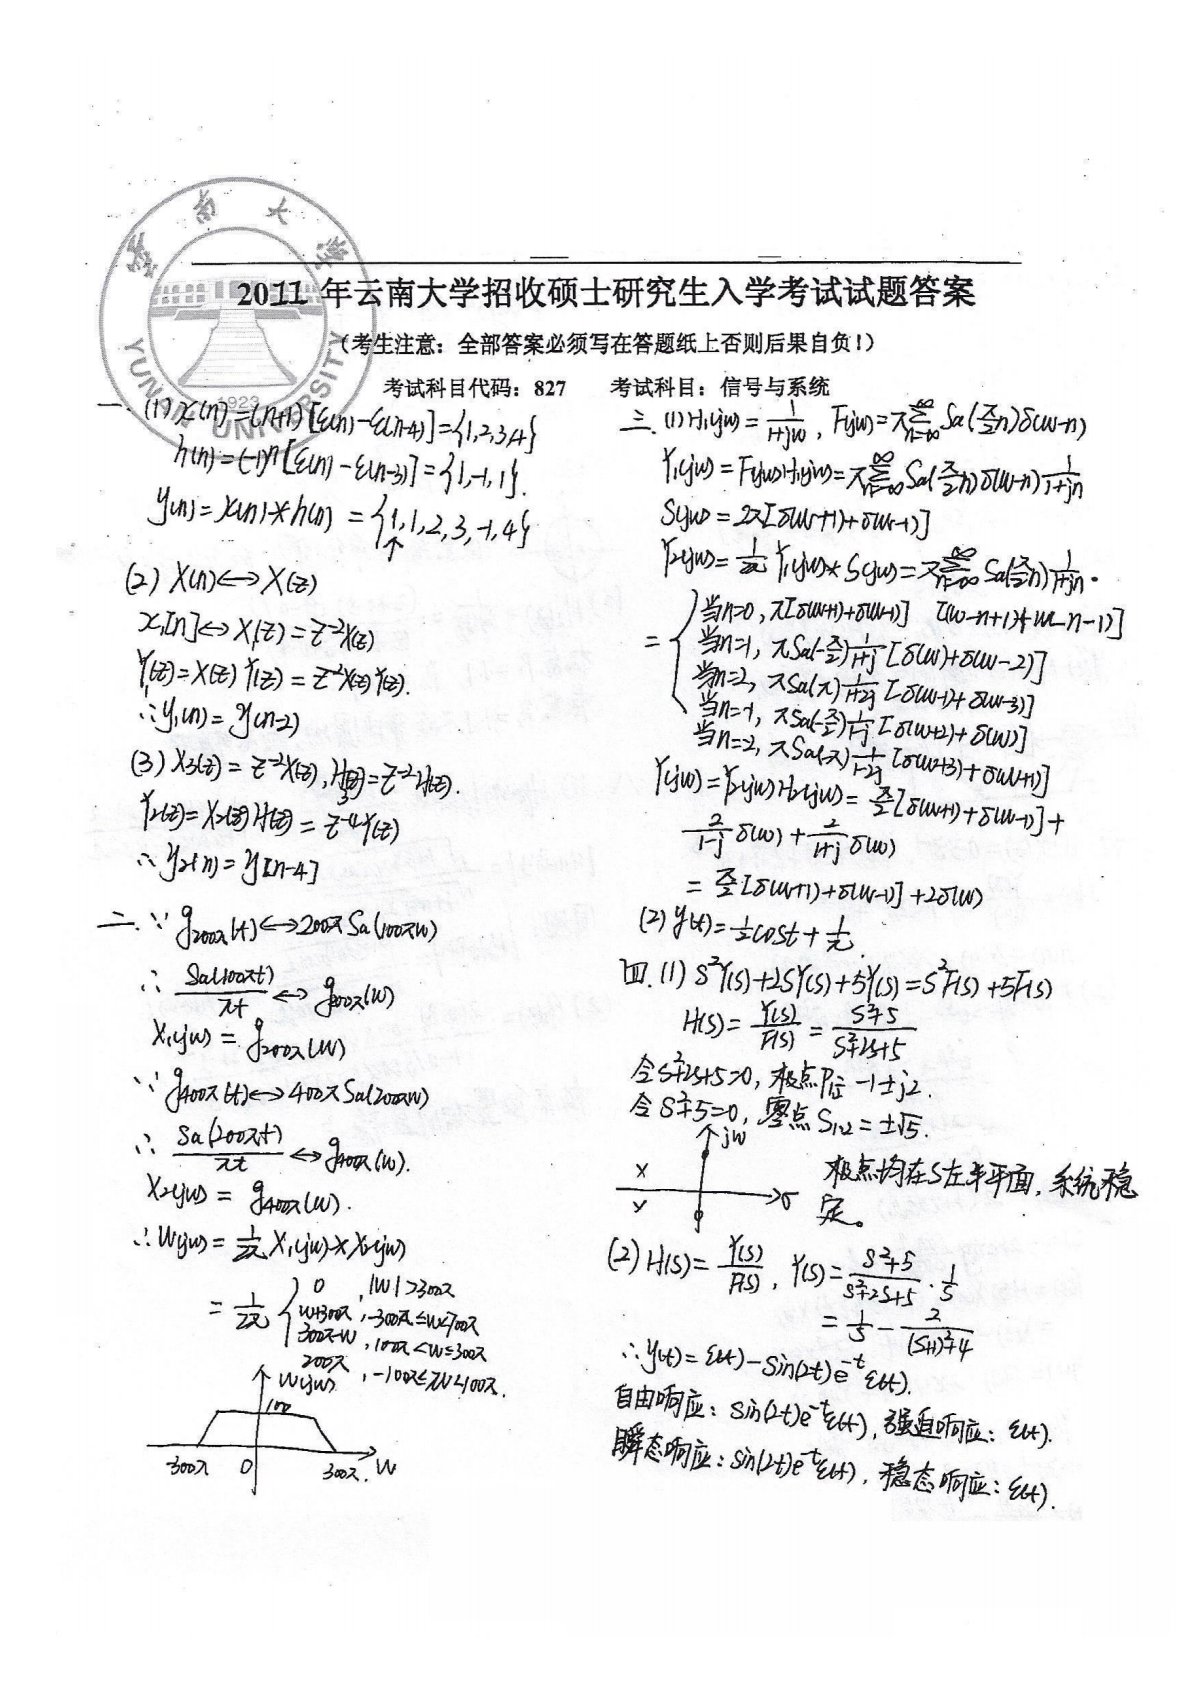 云南大学
YUNNAN UNIVERSITY
1923
2011 年云南大学招收硕士研究生入学考试试题答案
(考生注意：全部答案必须写在答题纸上否则后果自负!)
考试科目代码：827 考试科目：信号与系统
一、(1) x(n)=(n+1)[ε(n)-ε(n-4)]={1,2,3,4}
h(n)=(-1)ⁿ[ε(n)-ε(n-3)]={1,-1,1}.
y(n)=x(n)*h(n)={1,1,2,3,-1,4}
↑
(2) X(n)↔X(z)
x₁[n]↔X₁(z)=z⁻²X(z)
Y(z)=X(z) Y₁(z)=z⁻²X(z)Y(z).
∴y₁(n)=y(n-2)
(3) X₃(z)=z⁻²X(z), H₃(z)=z⁻²H(z).
Y₂(z)=X₂(z)H(z)=z⁻⁴Y(z)
∴y₂(n)=y[n-4]
二、∵g₂₀₀π(t)↔200πSa(100πw)
∴Sa(100πt)/πt↔g₂₀₀π(w)
X₁(jw)=g₂₀₀π(w)
∵g₄₀₀π(t)↔400πSa(200πw)
∴Sa(200πt)/πt↔g₄₀₀π(w).
X₂(jw)=g₄₀₀π(w).
∴W(jw)=1/2π X₁(jw)*X₂(jw)
=1/2π { 0 , |w|>300π
w+300π, -300π≤w<100π
300π-w, 100π<w≤300π
200π, -100π≤w<100π.
W(jw)
100
300π 0 300π. w
三、(1) H₁(jw)=1/(1+jw), F(jw)=π∑Sa(π/2 n)δ(w-n)
Y₁(jw)=F(jw)H₁(jw)=π∑Sa(π/2 n)δ(w-n)1/(1+jn)
S(jw)=2π[δ(w+1)+δ(w-1)]
Y₂(jw)=1/2π Y₁(jw)*S(jw)=π∑Sa(π/2 n)1/(1+jn)·
[(w-n+1)+(w-n-1)]
={当n=0, π[δ(w+1)+δ(w-1)]
当n=1, πSa(-π/2)1/(1+j)[δ(w)+δ(w-2)]
当n=2, πSa(π)1/(1+2j)[δ(w-1)+δ(w-3)]
当n=-1, πSa(-π/2)1/(1-j)[δ(w+2)+δ(w)]
当n=-2, πSa(-π)1/(1-2j)[δ(w+3)+δ(w+1)]
Y(jw)=Y₂(jw)H₂(jw)=π/2[δ(w+1)+δ(w-1)]+
2/(1-j)δ(w)+2/(1+j)δ(w)
=π/2[δ(w+1)+δ(w-1)]+2δ(w)
(2) y(t)=1/2cost+1/π.
四、(1) S²Y(s)+2SY(s)+5Y(s)=S²F(s)+5F(s)
H(s)=Y(s)/F(s)=(S²+5)/(S²+2s+5)
令s²+2s+5=0, 极点P₁,₂ -1±j2.
令s²+5=0, 零点S₁,₂=±√5.
jw
σ
极点均在S左半平面, 系统稳
定。
(2) H(s)=Y(s)/F(s), Y(s)=(s²+5)/(s²+2s+5)·1/s
=1/s-2/((s+1)²+4)
∴y(t)=ε(t)-sin(2t)e⁻ᵗε(t).
自由响应: sin(2t)e⁻ᵗε(t), 强迫响应: ε(t).
瞬态响应: sin(2t)e⁻ᵗε(t), 稳态响应: ε(t).